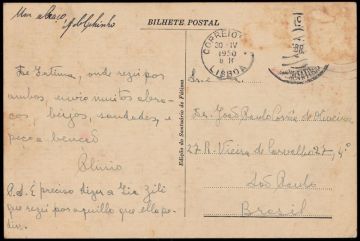 Um abraço, Adolphinho
BILHETE POSTAL
CORREIOS
20-IV
1950
LISBOA
De Fátima, onde rezei por
ambos, envio muitos abra-
ços, beijos, saudades, e
peço a benção
Plinio
P.S. É preciso dizer a Tia Zili
que rezei por aquillo que ella pe-
diu.
Edição do Santuário de Fátima
João Paulo Corrêa de Oliveira
R. Vieira de Carvalho 27, 4º
São Paulo
Brasil